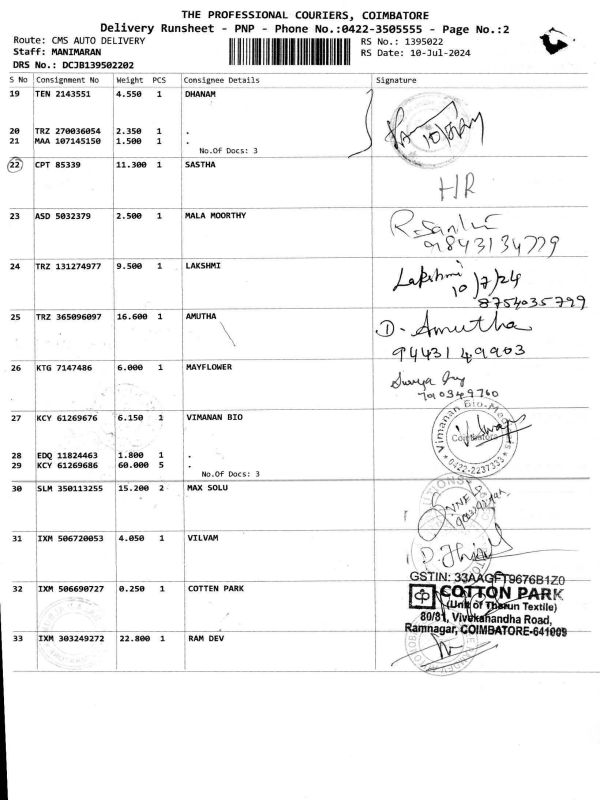 THE PROFESSIONAL COURIERS, COIMBATORE
Delivery Runsheet - PNP - Phone No.:0422-3505555 - Page No.:2
Route: CMS AUTO DELIVERY RS No.: 1395022
Staff: MANIMARAN RS Date: 10-Jul-2024
DRS No.: DCJB139502202
S No Consignment No Weight PCS Consignee Details Signature
19 TEN 2143551 4.550 1 DHANAM
20 TRZ 270036054 2.350 1 .
21 MAA 107145150 1.500 1 .
No.Of Docs: 3
22 CPT 85339 11.300 1 SASTHA
HR
23 ASD 5032379 2.500 1 MALA MOORTHY
9843134779
24 TRZ 131274977 9.500 1 LAKSHMI
Lakshmi
10/7/24
8754035799
25 TRZ 365096097 16.600 1 AMUTHA
D. Amutha
94431 49903
26 KTG 7147486 6.000 1 MAYFLOWER
27 KCY 61269676 6.150 1 VIMANAN BIO
Vimanan Bio-Med
Coimbatore
0422-2237333
28 EDQ 11824463 1.800 1 .
29 KCY 61269686 60.000 5 .
No.Of Docs: 3
30 SLM 350113255 15.200 2 MAX SOLU
31 IXM 506720053 4.050 1 VILVAM
GSTIN: 33AAGFT9676B1Z0
32 IXM 506690727 0.250 1 COTTEN PARK
COTTON PARK
(Unit of Tharun Textile)
80/81, Vivekanandha Road,
Ramnagar, COIMBATORE-641009
33 IXM 303249272 22.800 1 RAM DEV